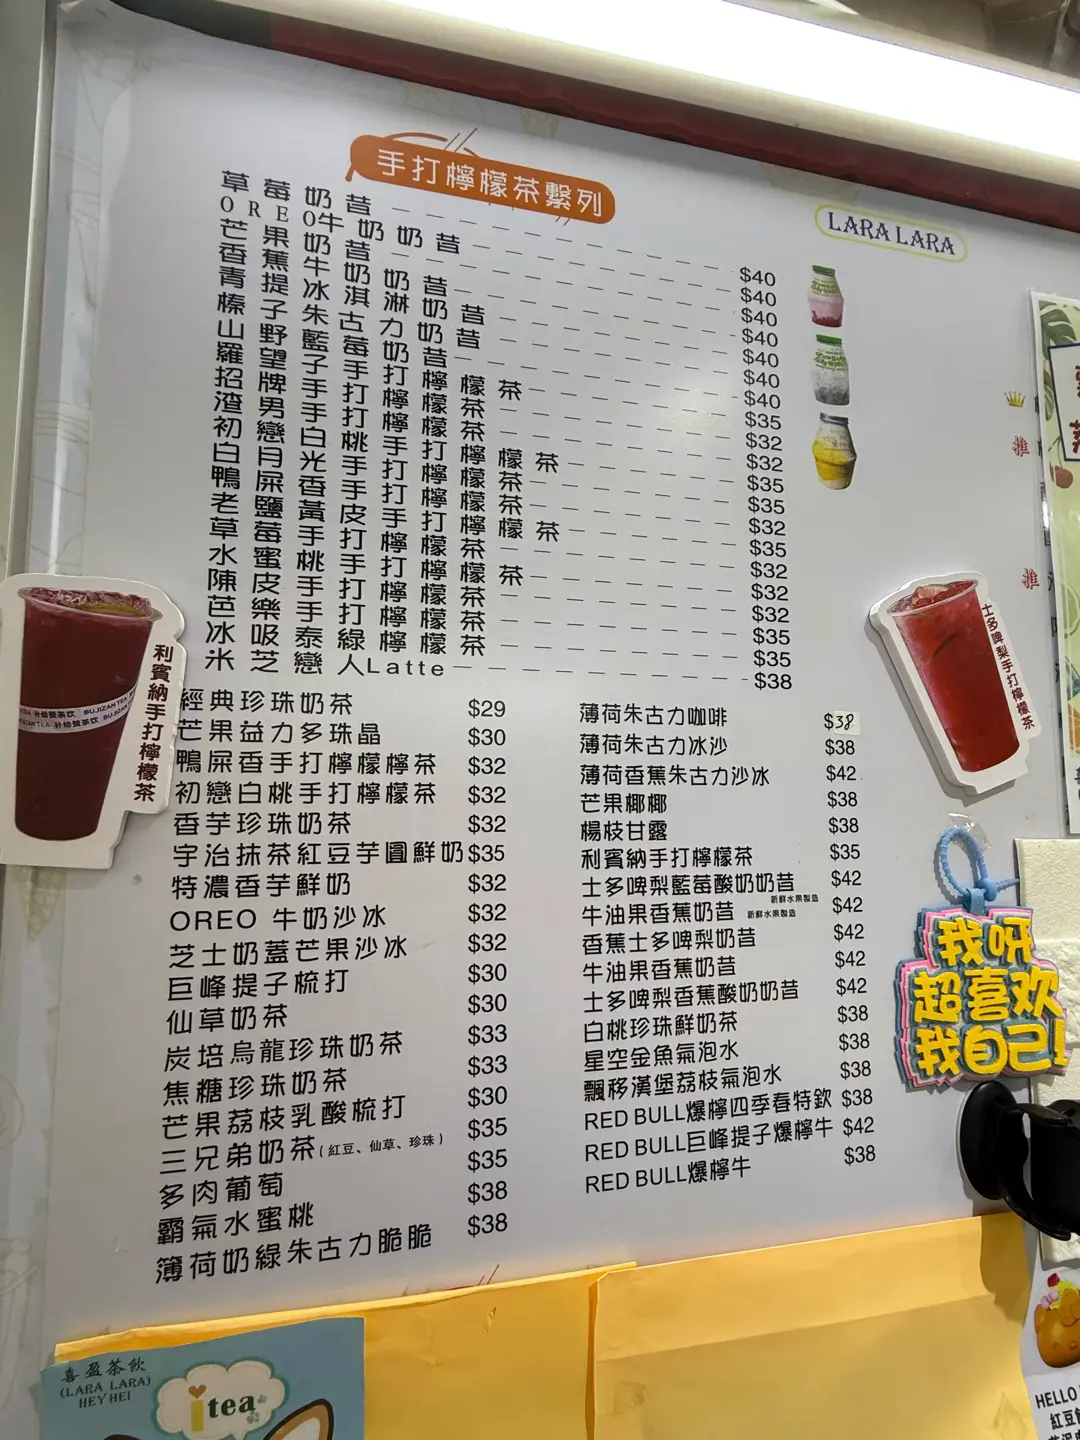 手打檸檬茶繫列
LARA LARA
草莓奶昔 $40
OREO牛奶奶昔 $40
芒果奶昔 $40
香蕉牛奶奶昔 $40
青提冰淇淋奶昔 $40
榛子朱古力奶昔 $40
山野藍莓奶昔 $40
羅望子手打檸檬茶 $35
招牌手打檸檬茶 $32
渣男手打檸檬茶 $32
初戀白桃手打檸檬茶 $35
白月光手打檸檬茶 $35
鴨屎香手打檸檬茶 $32
老鹽黃皮手打檸檬茶 $35
草莓手打檸檬茶 $32
水蜜桃手打檸檬茶 $32
陳皮手打檸檬茶 $32
芭樂手打檸檬茶 $35
冰吸泰綠檸檬茶 $35
米芝戀人Latte $38
利賓納手打檸檬茶
士多啤梨手打檸檬茶
經典珍珠奶茶 $29
芒果益力多珠晶 $30
鴨屎香手打檸檬檸茶 $32
初戀白桃手打檸檬茶 $32
香芋珍珠奶茶 $32
宇治抹茶紅豆芋圓鮮奶 $35
特濃香芋鮮奶 $32
OREO 牛奶沙冰 $32
芝士奶蓋芒果沙冰 $32
巨峰提子梳打 $30
仙草奶茶 $30
炭培烏龍珍珠奶茶 $33
焦糖珍珠奶茶 $33
芒果荔枝乳酸梳打 $30
三兄弟奶茶(紅豆、仙草、珍珠) $35
多肉葡萄 $35
霸氣水蜜桃 $38
簿荷奶綠朱古力脆脆 $38
薄荷朱古力咖啡 $38
薄荷朱古力冰沙 $38
薄荷香蕉朱古力沙冰 $42
芒果椰椰 $38
楊枝甘露 $38
利賓納手打檸檬茶 $35
士多啤梨藍莓酸奶奶昔 新鮮水果製造 $42
牛油果香蕉奶昔 新鮮水果製造 $42
香蕉士多啤梨奶昔 $42
牛油果香蕉奶昔 $42
士多啤梨香蕉酸奶奶昔 $42
白桃珍珠鮮奶茶 $38
星空金魚氣泡水 $38
飄移漢堡荔枝氣泡水 $38
RED BULL爆檸四季春特飲 $38
RED BULL巨峰提子爆檸牛 $42
RED BULL爆檸牛 $38
我呀
超喜欢
我自己!
喜盈茶飲
(LARA LARA)
HEY HEI
itea
HELLO
紅豆